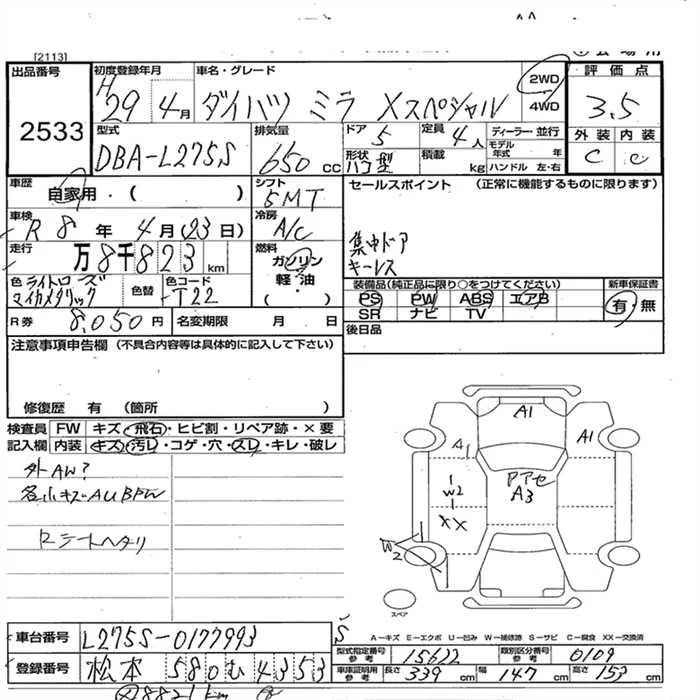 [2113]
出品番号 2533
初度登録年月 H29 4月
車名・グレード ダイハツ ミラ Xスペシャル
2WD
4WD
評価点 3.5
外装 内装
C C
型式 DBA-L275S
排気量 650 cc
ドア 5
形状 ハコ型
定員 4人
積載 kg
ディーラー・並行
モデル年式 年
ハンドル 左・右
車歴 自家用・( )
シフト 5MT
セールスポイント (正常に機能するものに限ります)
車検 R8年 4月(23日)
冷房 A/C
集中ドア
キーレス
走行 万8千823km
燃料 ガソリン
軽油・
( )
色 ライトローズマイカメタリック
色替
色コード T22
装備品(純正品に限り○をつけてください)
PS PW ABS エアB
SR ナビ TV
新車保証書
有・無
R券 8,050円
名変期限 月 日
後日品
注意事項申告欄 (不具合内容等は具体的に記入して下さい)
修復歴 有 (箇所 )
検査員記入欄
FW キズ・飛石・ヒビ割・リペア跡・×要
内装 キズ・汚レ・コゲ・穴・スレ・キレ・破レ
外AW?
各小キズAUBPW
ロシートヘタリ
A1
A1
A1
W2
XX
アアセ
A3
W2
スペア
A-キズ E-エクボ U-凹み W-補修跡 S-サビ C-腐食 XX-交換済
車台番号 L275S-0177993
登録番号 松本 580 む 4353
型式指定番号 参考 15622
類別区分番号 参考 0109
車庫証明用 参考 長さ 339 cm 幅 147 cm 高さ 153 cm
8821km